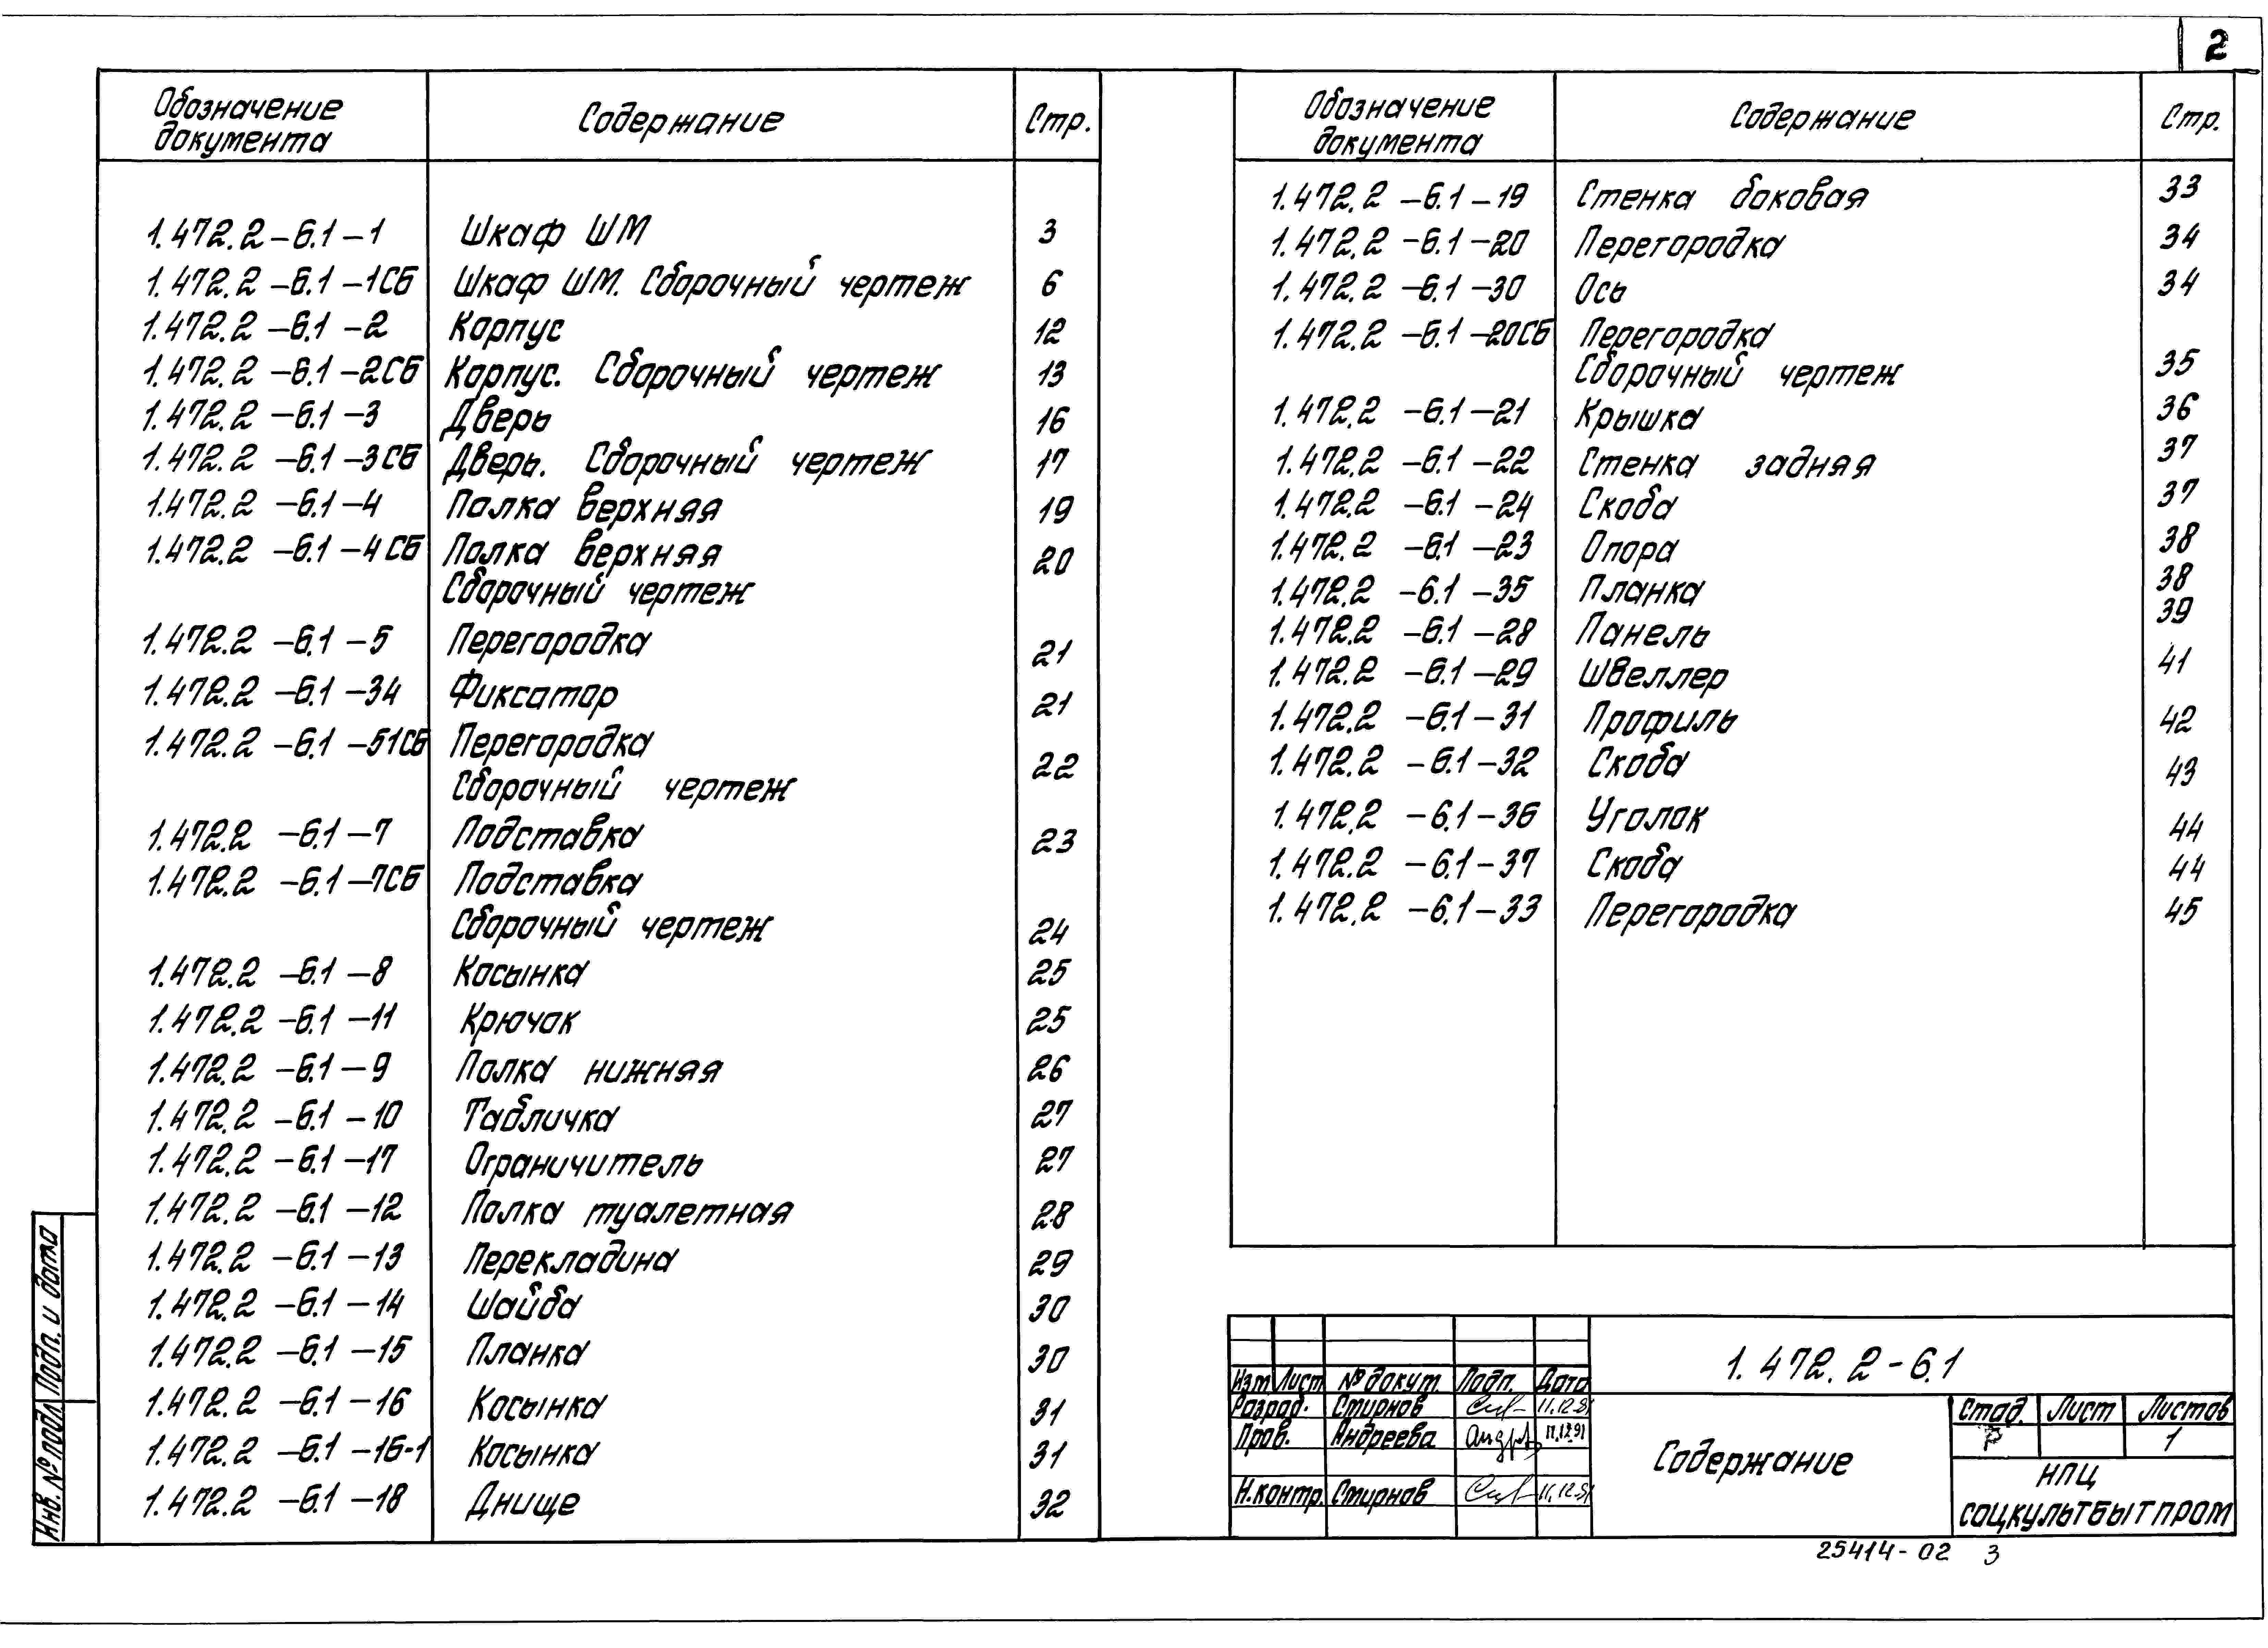 2
Обозначение документа Содержание Стр.
1.472.2-6.1-1 Шкаф ШМ 3
1.472.2-6.1-1СБ Шкаф ШМ. Сборочный чертеж 6
1.472.2-6.1-2 Корпус 12
1.472.2-6.1-2СБ Корпус. Сборочный чертеж 13
1.472.2-6.1-3 Дверь 16
1.472.2-6.1-3СБ Дверь. Сборочный чертеж 17
1.472.2-6.1-4 Полка верхняя 19
1.472.2-6.1-4СБ Полка верхняя 20
Сборочный чертеж
1.472.2-6.1-5 Перегородка 21
1.472.2-6.1-34 Фиксатор 21
1.472.2-6.1-51СБ Перегородка
Сборочный чертеж 22
1.472.2-6.1-7 Подставка 23
1.472.2-6.1-7СБ Подставка
Сборочный чертеж 24
1.472.2-6.1-8 Косынка 25
1.472.2-6.1-11 Крючок 25
1.472.2-6.1-9 Полка нижняя 26
1.472.2-6.1-10 Табличка 27
1.472.2-6.1-17 Ограничитель 27
1.472.2-6.1-12 Полка туалетная 28
1.472.2-6.1-13 Перекладина 29
1.472.2-6.1-14 Шайба 30
1.472.2-6.1-15 Планка 30
1.472.2-6.1-16 Косынка 31
1.472.2-6.1-16-1 Косынка 31
1.472.2-6.1-18 Днище 32
Обозначение документа Содержание Стр.
1.472.2-6.1-19 Стенка боковая 33
1.472.2-6.1-20 Перегородка 34
1.472.2-6.1-30 Ось 34
1.472.2-6.1-20СБ Перегородка
Сборочный чертеж 35
1.472.2-6.1-21 Крышка 36
1.472.2-6.1-22 Стенка задняя 37
1.472.2-6.1-24 Скоба 37
1.472.2-6.1-23 Опора 38
1.472.2-6.1-35 Планка 38
1.472.2-6.1-28 Панель 39
1.472.2-6.1-29 Швеллер 41
1.472.2-6.1-31 Профиль 42
1.472.2-6.1-32 Скоба 43
1.472.2-6.1-36 Уголок 44
1.472.2-6.1-37 Скоба 44
1.472.2-6.1-33 Перегородка 45
Подп. и дата
Инв. № подл
1.472.2-6.1
Изм Лист № докум. Подп. Дата
Разраб. Смирнов 11.12.91
Пров. Андреева 11.12.91
Н.контр Смирнов 11.12.91
Содержание
Стад. Лист Листов
Р 1
НПЦ
СОЦКУЛЬТБЫТПРОМ
25414-02 3